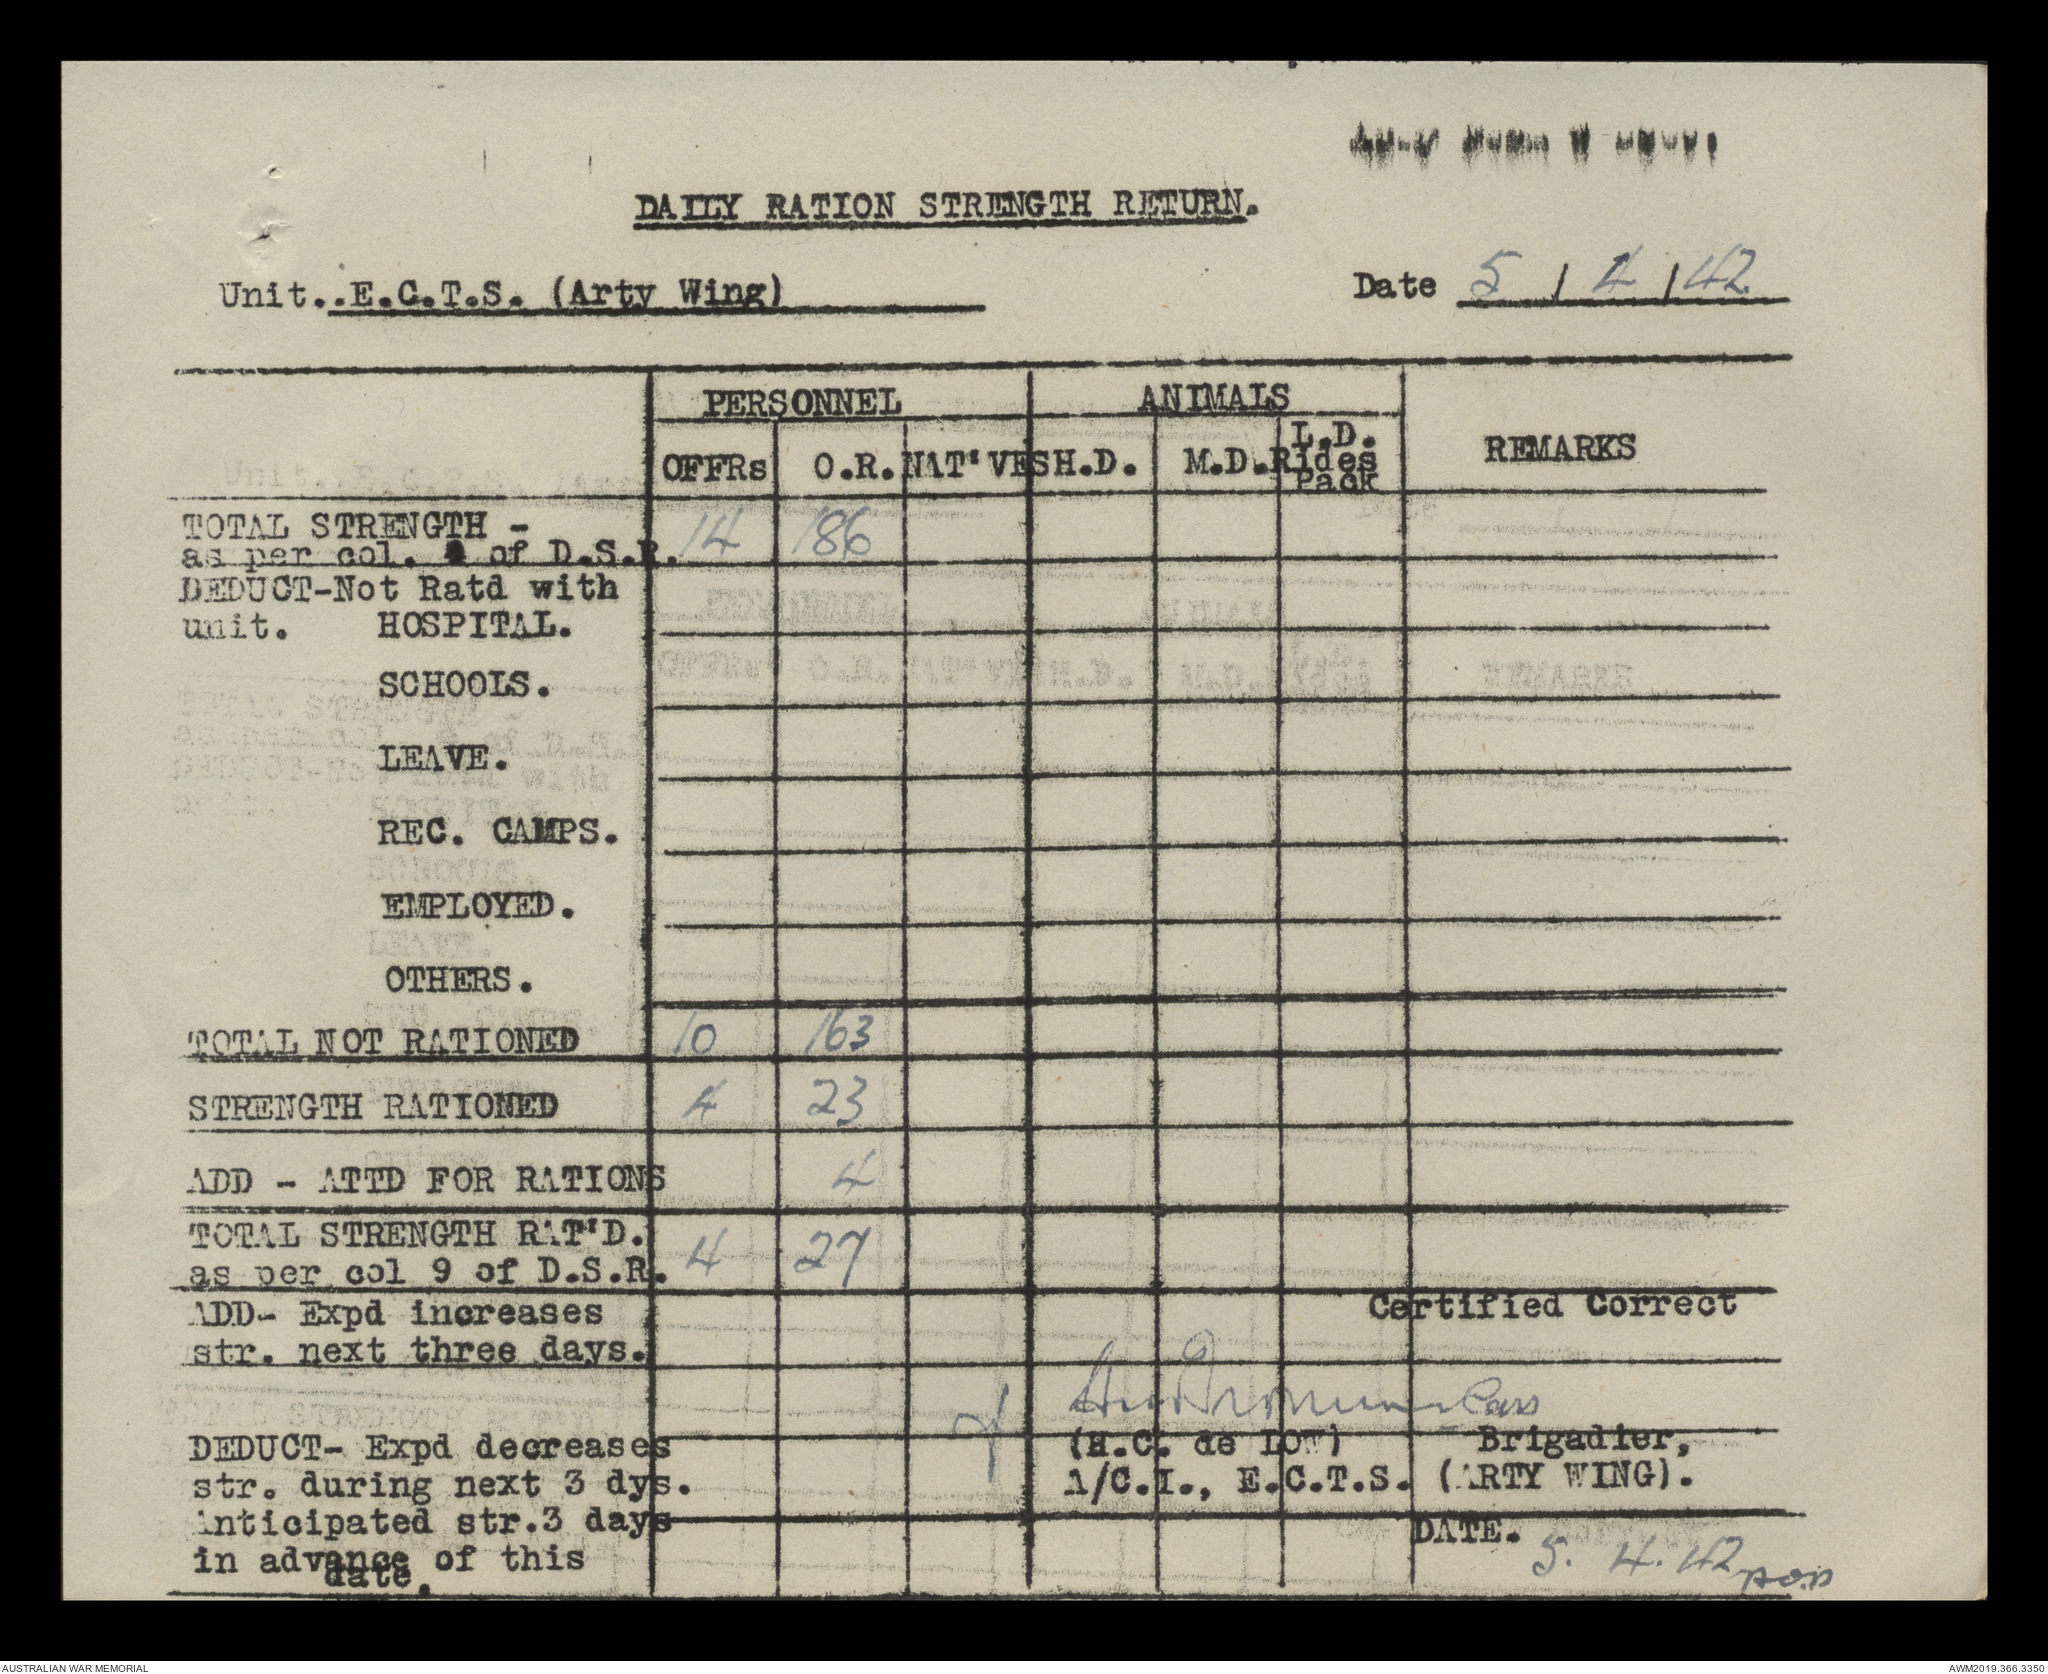 DAILY RATION STRENGTH RETURN.
Unit..E.C.T.S. (Arty Wing)
Date 5 / 4 / 42
PERSONNEL ANIMALS
OFFRs O.R. NAT'VES H.D. M.D. L.D. Rides Pack REMARKS
TOTAL STRENGTH - 14 186
as per col. of D.S.R.
DEDUCT-Not Ratd with
unit. HOSPITAL.
SCHOOLS.
LEAVE.
REC. CAMPS.
EMPLOYED.
OTHERS.
TOTAL NOT RATIONED 10 163
STRENGTH RATIONED 4 23
ADD - ATTD FOR RATIONS 4
TOTAL STRENGTH RAT'D. 4 27
as per col 9 of D.S.R.
ADD- Expd increases
str. next three days.
Certified Correct
DEDUCT- Expd decreases
str. during next 3 dys.
Anticipated str.3 days
in advance of this
date.
(H.C. de LOW) Brigadier,
A/C.I., E.C.T.S. (ARTY WING).
DATE. 5. 4. 42
AUSTRALIAN WAR MEMORIAL
AWM2019.366.3350